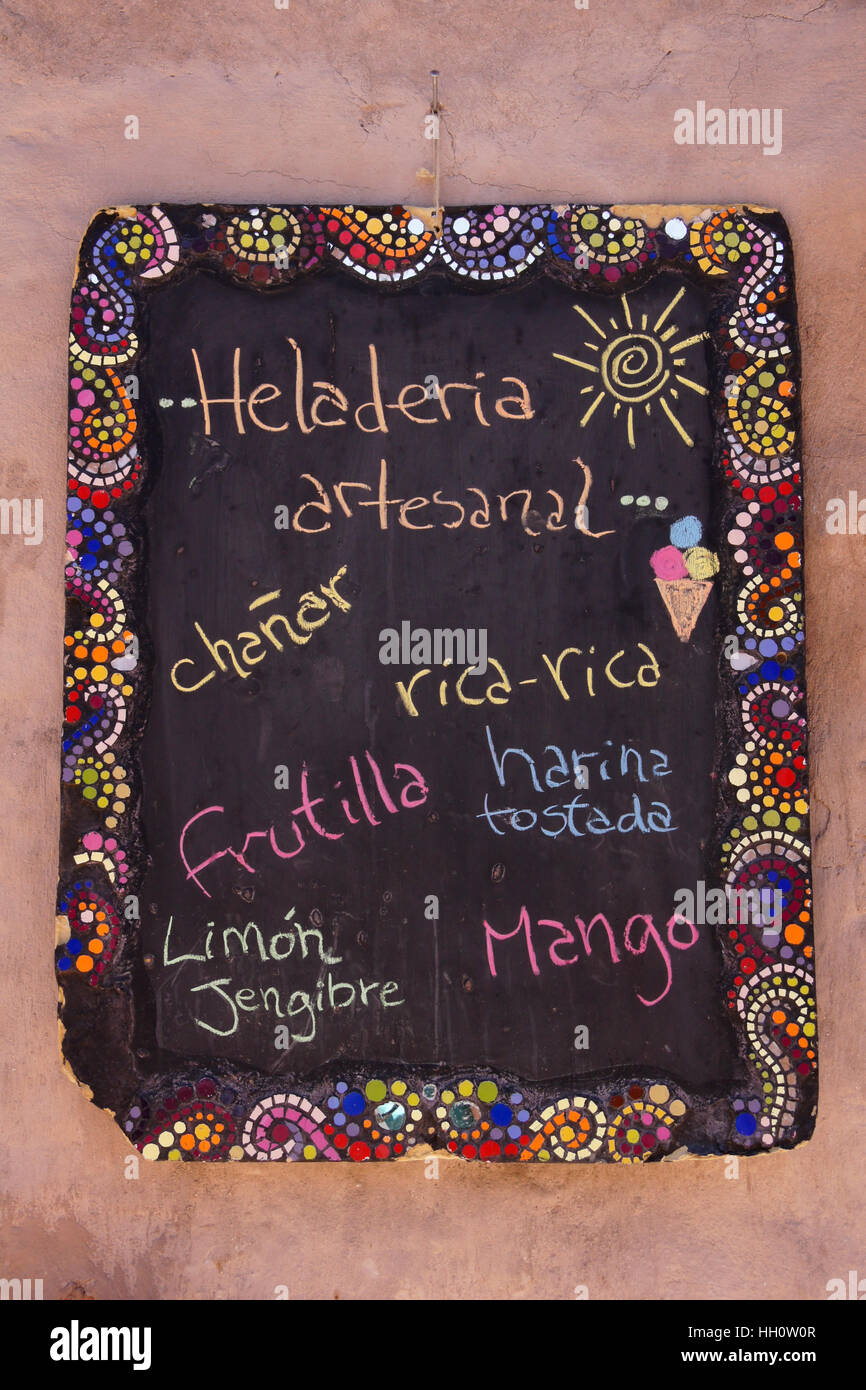 Heladeria
artesanal
chañar
rica-rica
harina
tostada
frutilla
Limón
Jengibre
Mango
alamy
Image ID: HH0W0R
www.alamy.com